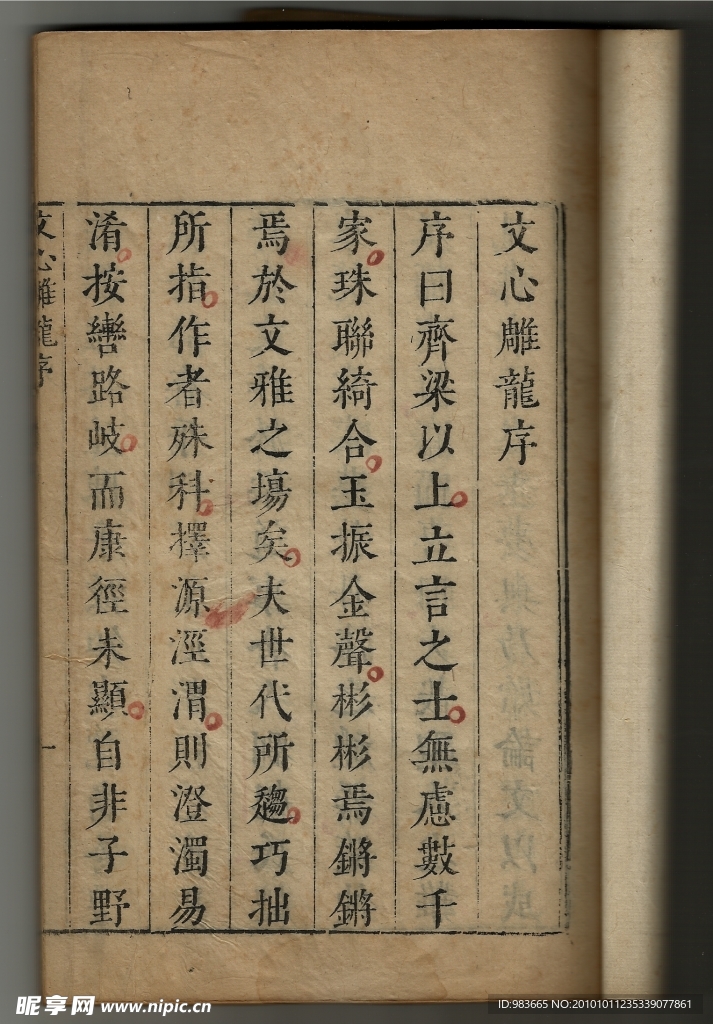 文心雕龍序
序曰齊梁以上立言之士無慮數千
家珠聯綺合玉振金聲彬彬焉鏘鏘
焉於文雅之場矣夫世代所趨巧拙
所指作者殊科擇源涇渭則澄濁易
淆按轡路岐而康徑未顯自非子野
文心雕龍序
一
昵享网 www.nipic.cn
ID:983665 NO:20101011235339077861